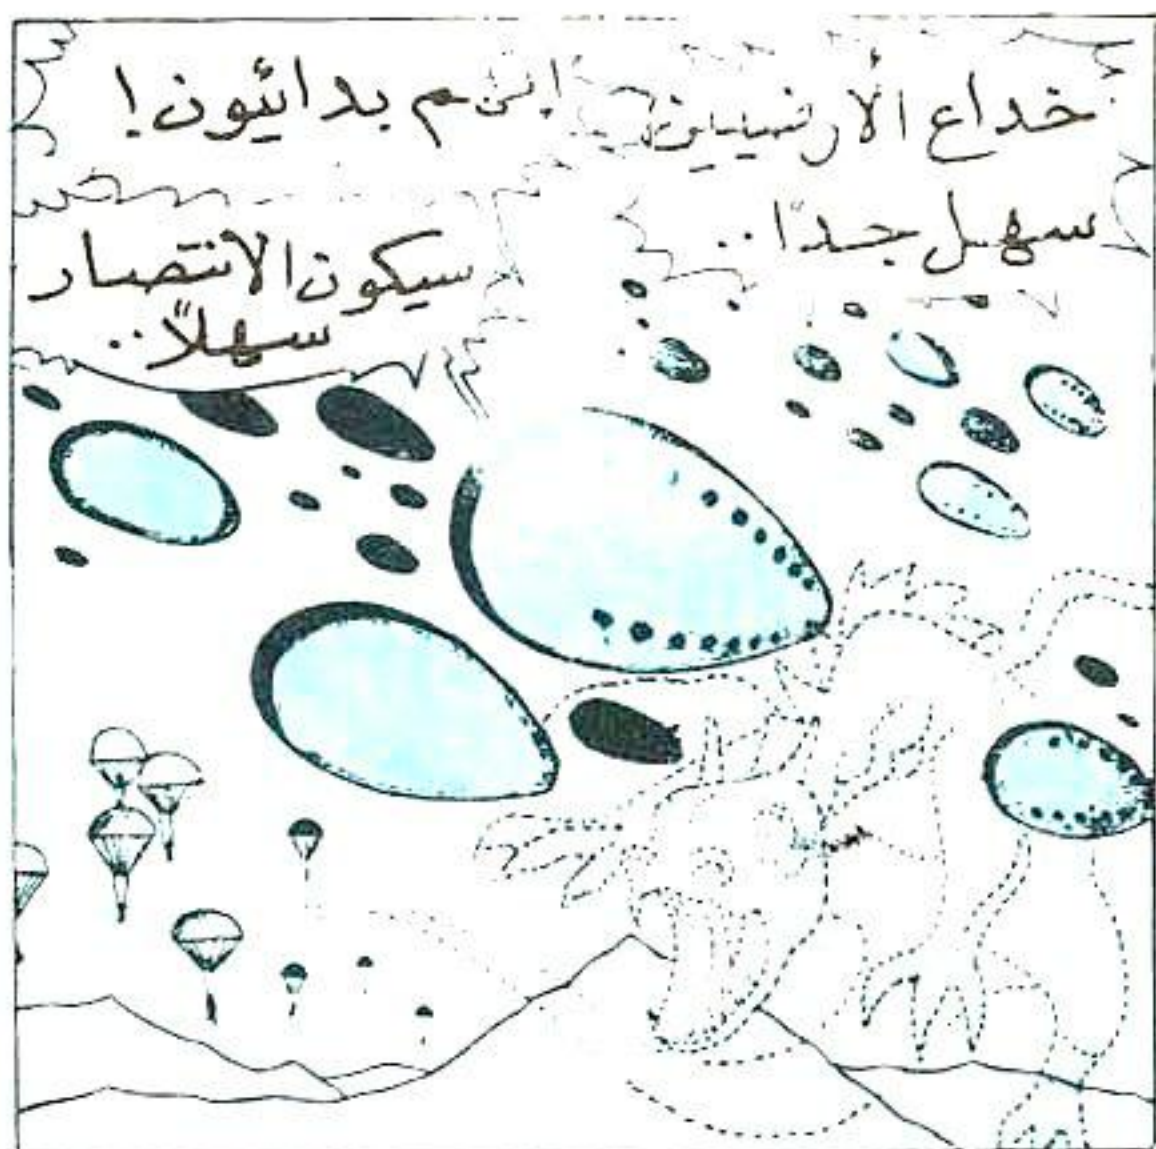 خداع الأرضيين
سهل جدًا..
إنهم بدائيون!
سيكون الانتصار
سهلاً..